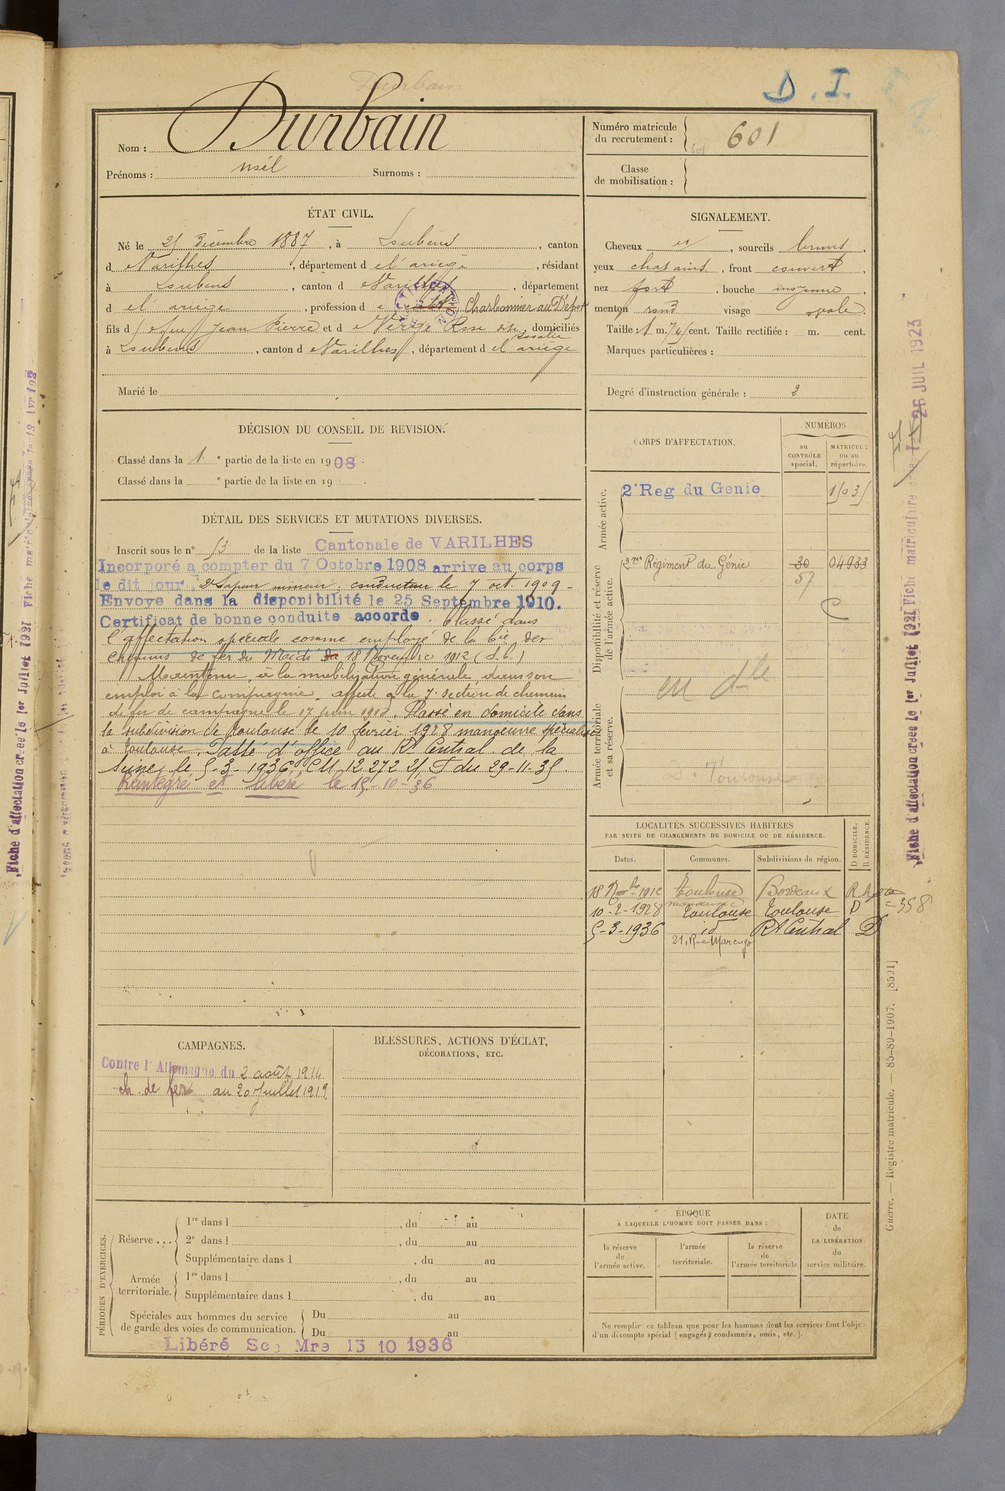 D. I.
Nom : Durbain
Prénoms : Noël Surnoms :
Numéro matricule du recrutement : 601
Classe de mobilisation :
ÉTAT CIVIL.
Né le 25 Décembre 1887, à Loubens, canton
d Varilhes, département d e l'ariège, résidant
à Loubens, canton d Varilhes, département
d e l'ariège, profession d e Charbonnier au Dépôt
fils d feu Jean Pierre et d e Rose domiciliés
Rosalie
à Loubens, canton d Varilhes, département d e l'ariège
Marié le
SIGNALEMENT.
Cheveux, sourcils bruns
yeux chatains, front couvert
nez fort, bouche moyenne
menton rond visage ovale
Taille : 1 m. 74 cent. Taille rectifiée : m. cent.
Marques particulières :
Degré d'instruction générale : 3
DÉCISION DU CONSEIL DE REVISION.
Classé dans la 1 e partie de la liste en 1908.
Classé dans la e partie de la liste en 19 .
DÉTAIL DES SERVICES ET MUTATIONS DIVERSES.
Inscrit sous le n° 13 de la liste Cantonale de VARILHES
Incorporé a compter du 7 Octobre 1908 arrive au corps
le dit jour. Sapeur mineur, le 7 oct. 1909 -
Envoye dans la disponibilité le 25 Septembre 1910.
Certificat de bonne conduite accorde. Classé dans
l'affectation spéciale comme employé de la Cie des
Chemins de fer du Midi 18 Novembre 1912 (S.C.)
Maintenu, à la mobilisation générale, dans son
emploi à la Compagnie, affecté à la 7e section de chemins
de fer de campagne le 17 juin 1918. Passé en domicile dans
la subdivision de Toulouse le 10 février 1928 manœuvre spécialisé
à Toulouse. Passé d'office au Rt Central de la
Seine, le 5-3-1936. CM 12 272 du 29-11-35.
Réintégré et libéré le 15-10-36
CORPS D'AFFECTATION.
NUMÉROS
au CONTRÔLE spécial.
MATRICULE ou au répertoire.
Armée active.
2e Reg du Genie
Disponibilité et réserve de l'armée active.
2me Régiment du Génie 30 04933
57
Armée territoriale et sa réserve.
LOCALITÉS SUCCESSIVES HABITÉES
PAR SUITE DE CHANGEMENTS DE DOMICILE OU DE RÉSIDENCE.
Dates. Communes. Subdivisions de région. D DOMICILE. R RÉSIDENCE.
18 Nbre 1912 Toulouse Bordeaux R
10-2-1928 Toulouse Toulouse D
5-3-1936 id Rt Central D
21, Rue Marengo
CAMPAGNES.
Contre l'Allemagne du 2 août 1914
ch. de fer au 20 Juillet 1919
BLESSURES, ACTIONS D'ÉCLAT,
DÉCORATIONS, ETC.
PÉRIODES D'EXERCICES.
Réserve . . .
1re dans l , du au
2e dans l , du au
Supplémentaire dans l , du au
Armée territoriale.
1re dans l , du au
Supplémentaire dans l , du au
Spéciales aux hommes du service de garde des voies de communication.
Du au
Du au
Libéré Sce Mre 15 10 1936
ÉPOQUE
À LAQUELLE L'HOMME DOIT PASSER DANS :
la réserve de l'armée active.
l'armée territoriale.
la réserve de l'armée territoriale.
DATE de LA LIBÉRATION du service militaire.
Ne remplir ce tableau que pour les hommes dont les services font l'objet
d'un décompte spécial (engagés, condamnés, omis, etc.).
Guerre. — Registre matricule. — 85-89-1907. [8591]
Fiche d'affectation créée le 1er Juillet 1921
Fiche matriculaire
26 JUIL 1923
Fiche d'affectation créée le 1er Juillet 1921